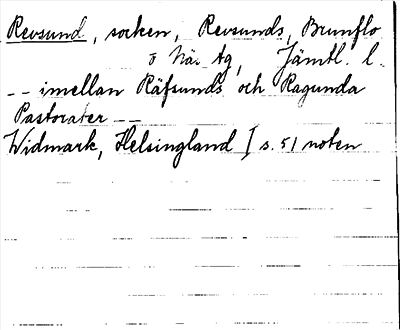 Revsund, socken, Revsunds, Brunflo
o När tg, Jämtl. l.
-- imellan Räfsunds och Ragunda
Pastorater --
Widmark, Helsingland I s. 51 noten